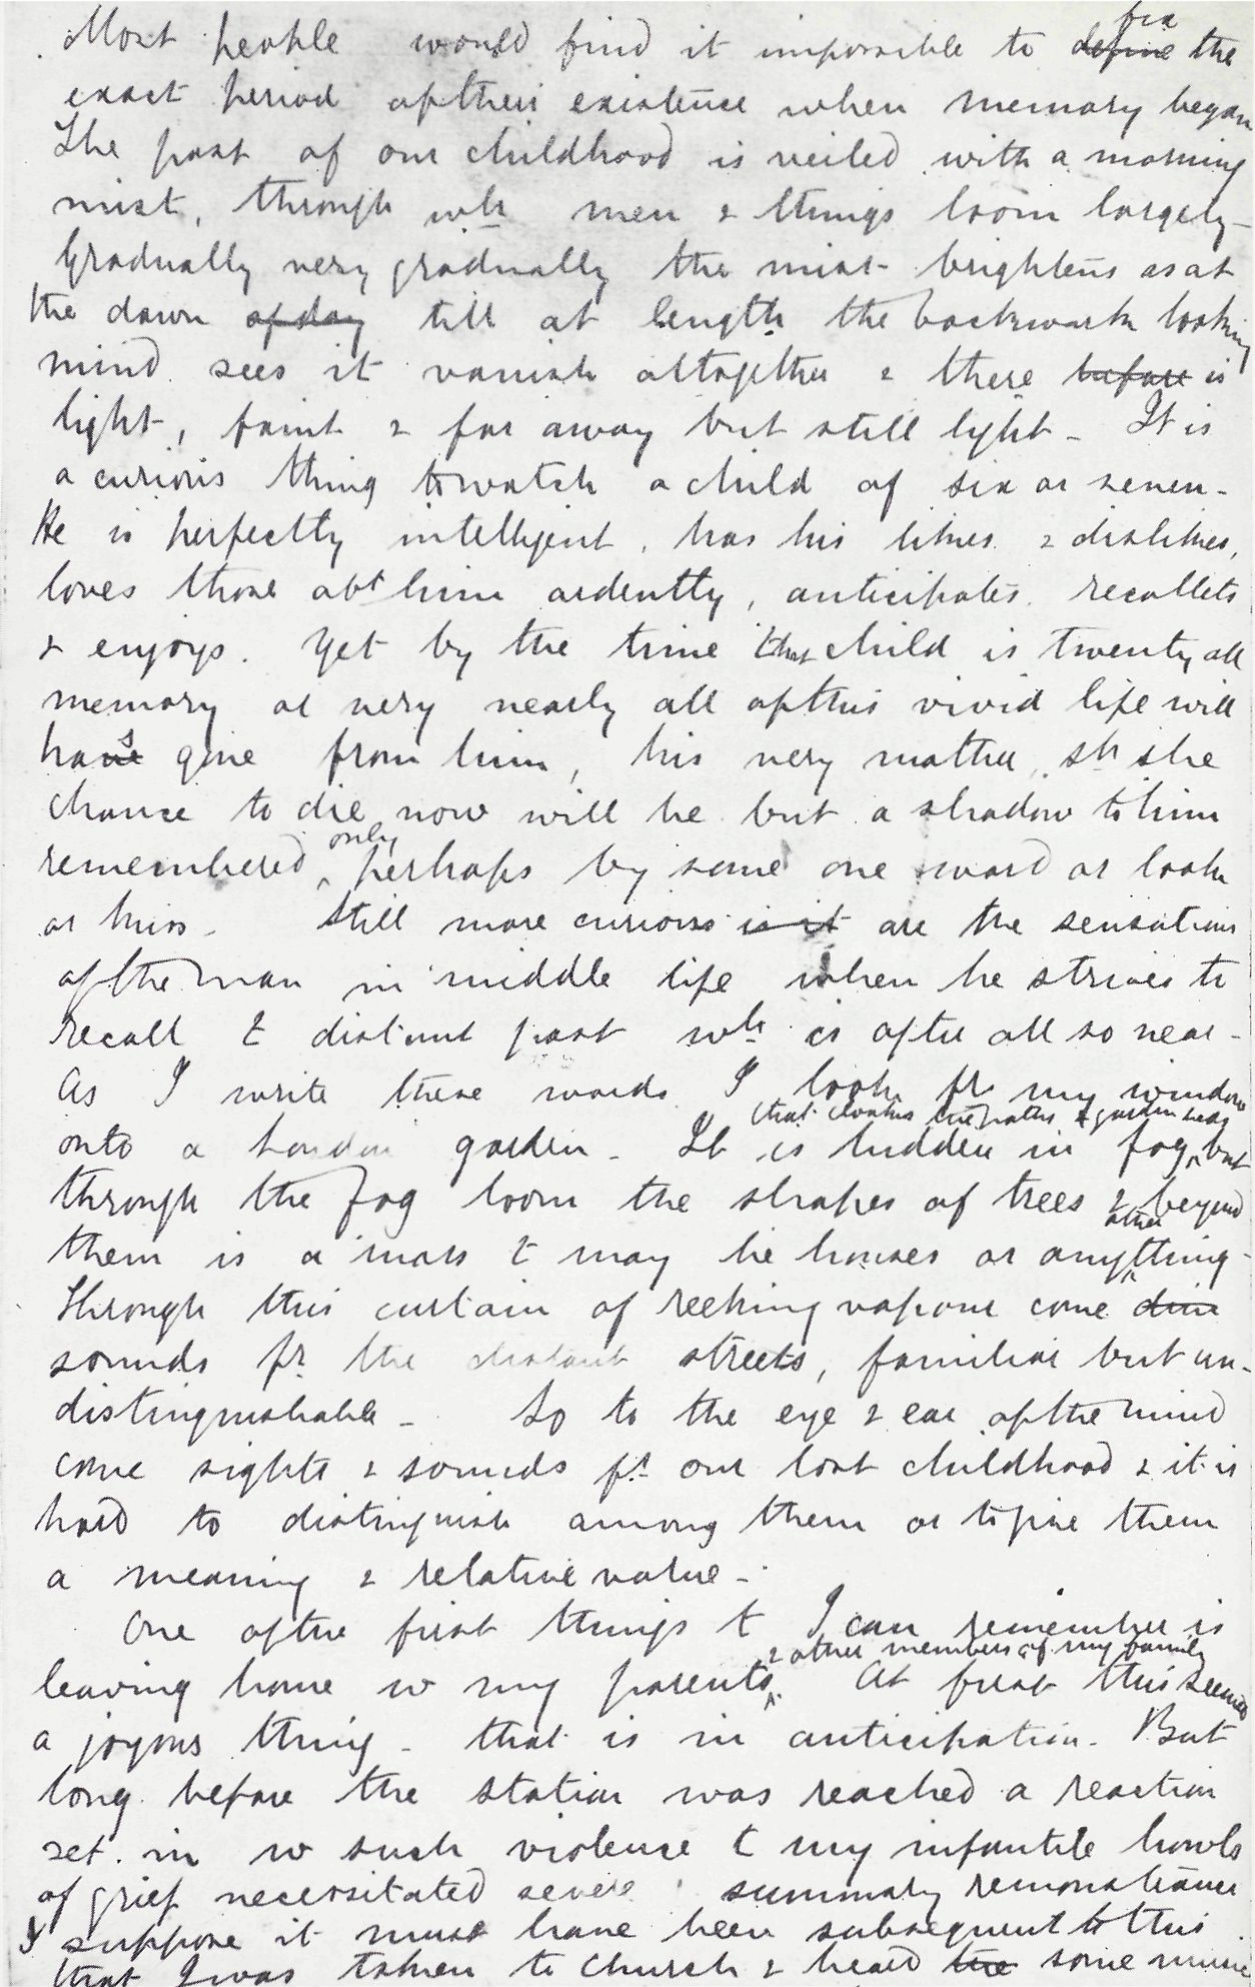 Most people would find it impossible to define fix the
exact period of their existence when memory began
The past of our childhood is veiled with a morning
mist, through wh men & things loom largely –
Gradually very gradually the mist brightens as at
the dawn of day till at length the backwards looking
mind sees it vanish altogether & there before is
light, faint & far away but still light – It is
a curious thing to watch a child of six or seven –
He is perfectly intelligent, has his likes & dislikes,
loves those abt him ardently, anticipates, recollects
& enjoys. Yet by the time that child is twenty all
memory or very nearly all of this vivid life will
have gone from him, his very mother, shd she
chance to die now will be but a shadow to him
remembered only perhaps by some one word or look
or kiss – Still more curious is it are the sensations
of the man in middle life when he strives to
recall t distant past wh is after all so near –
As I write these words I look fr my window
onto a London garden – It is hidden in fog that cloaks the paths & garden beds but
through the fog loom the shapes of trees & beyond
them is a mass t may be houses or any other thing –
Through this curtain of reeking vapour come dim
sounds fr. the distant streets, familiar but un-
distinguishable – So to the eye & ear of the mind
come sights & sounds fr our lost childhood & it is
hard to distinguish among them or to give them
a meaning & relative value –
One of the first things t I can remember is
leaving home w my parents & other members of my family. At first this seemed
a joyous thing – that is in anticipation – But
long before the station was reached a reaction
set in w such violence t my infantile howls
of grief necessitated severe summary remonstrance
I suppose it must have been subsequent to this
that I was taken to church & heard the some music